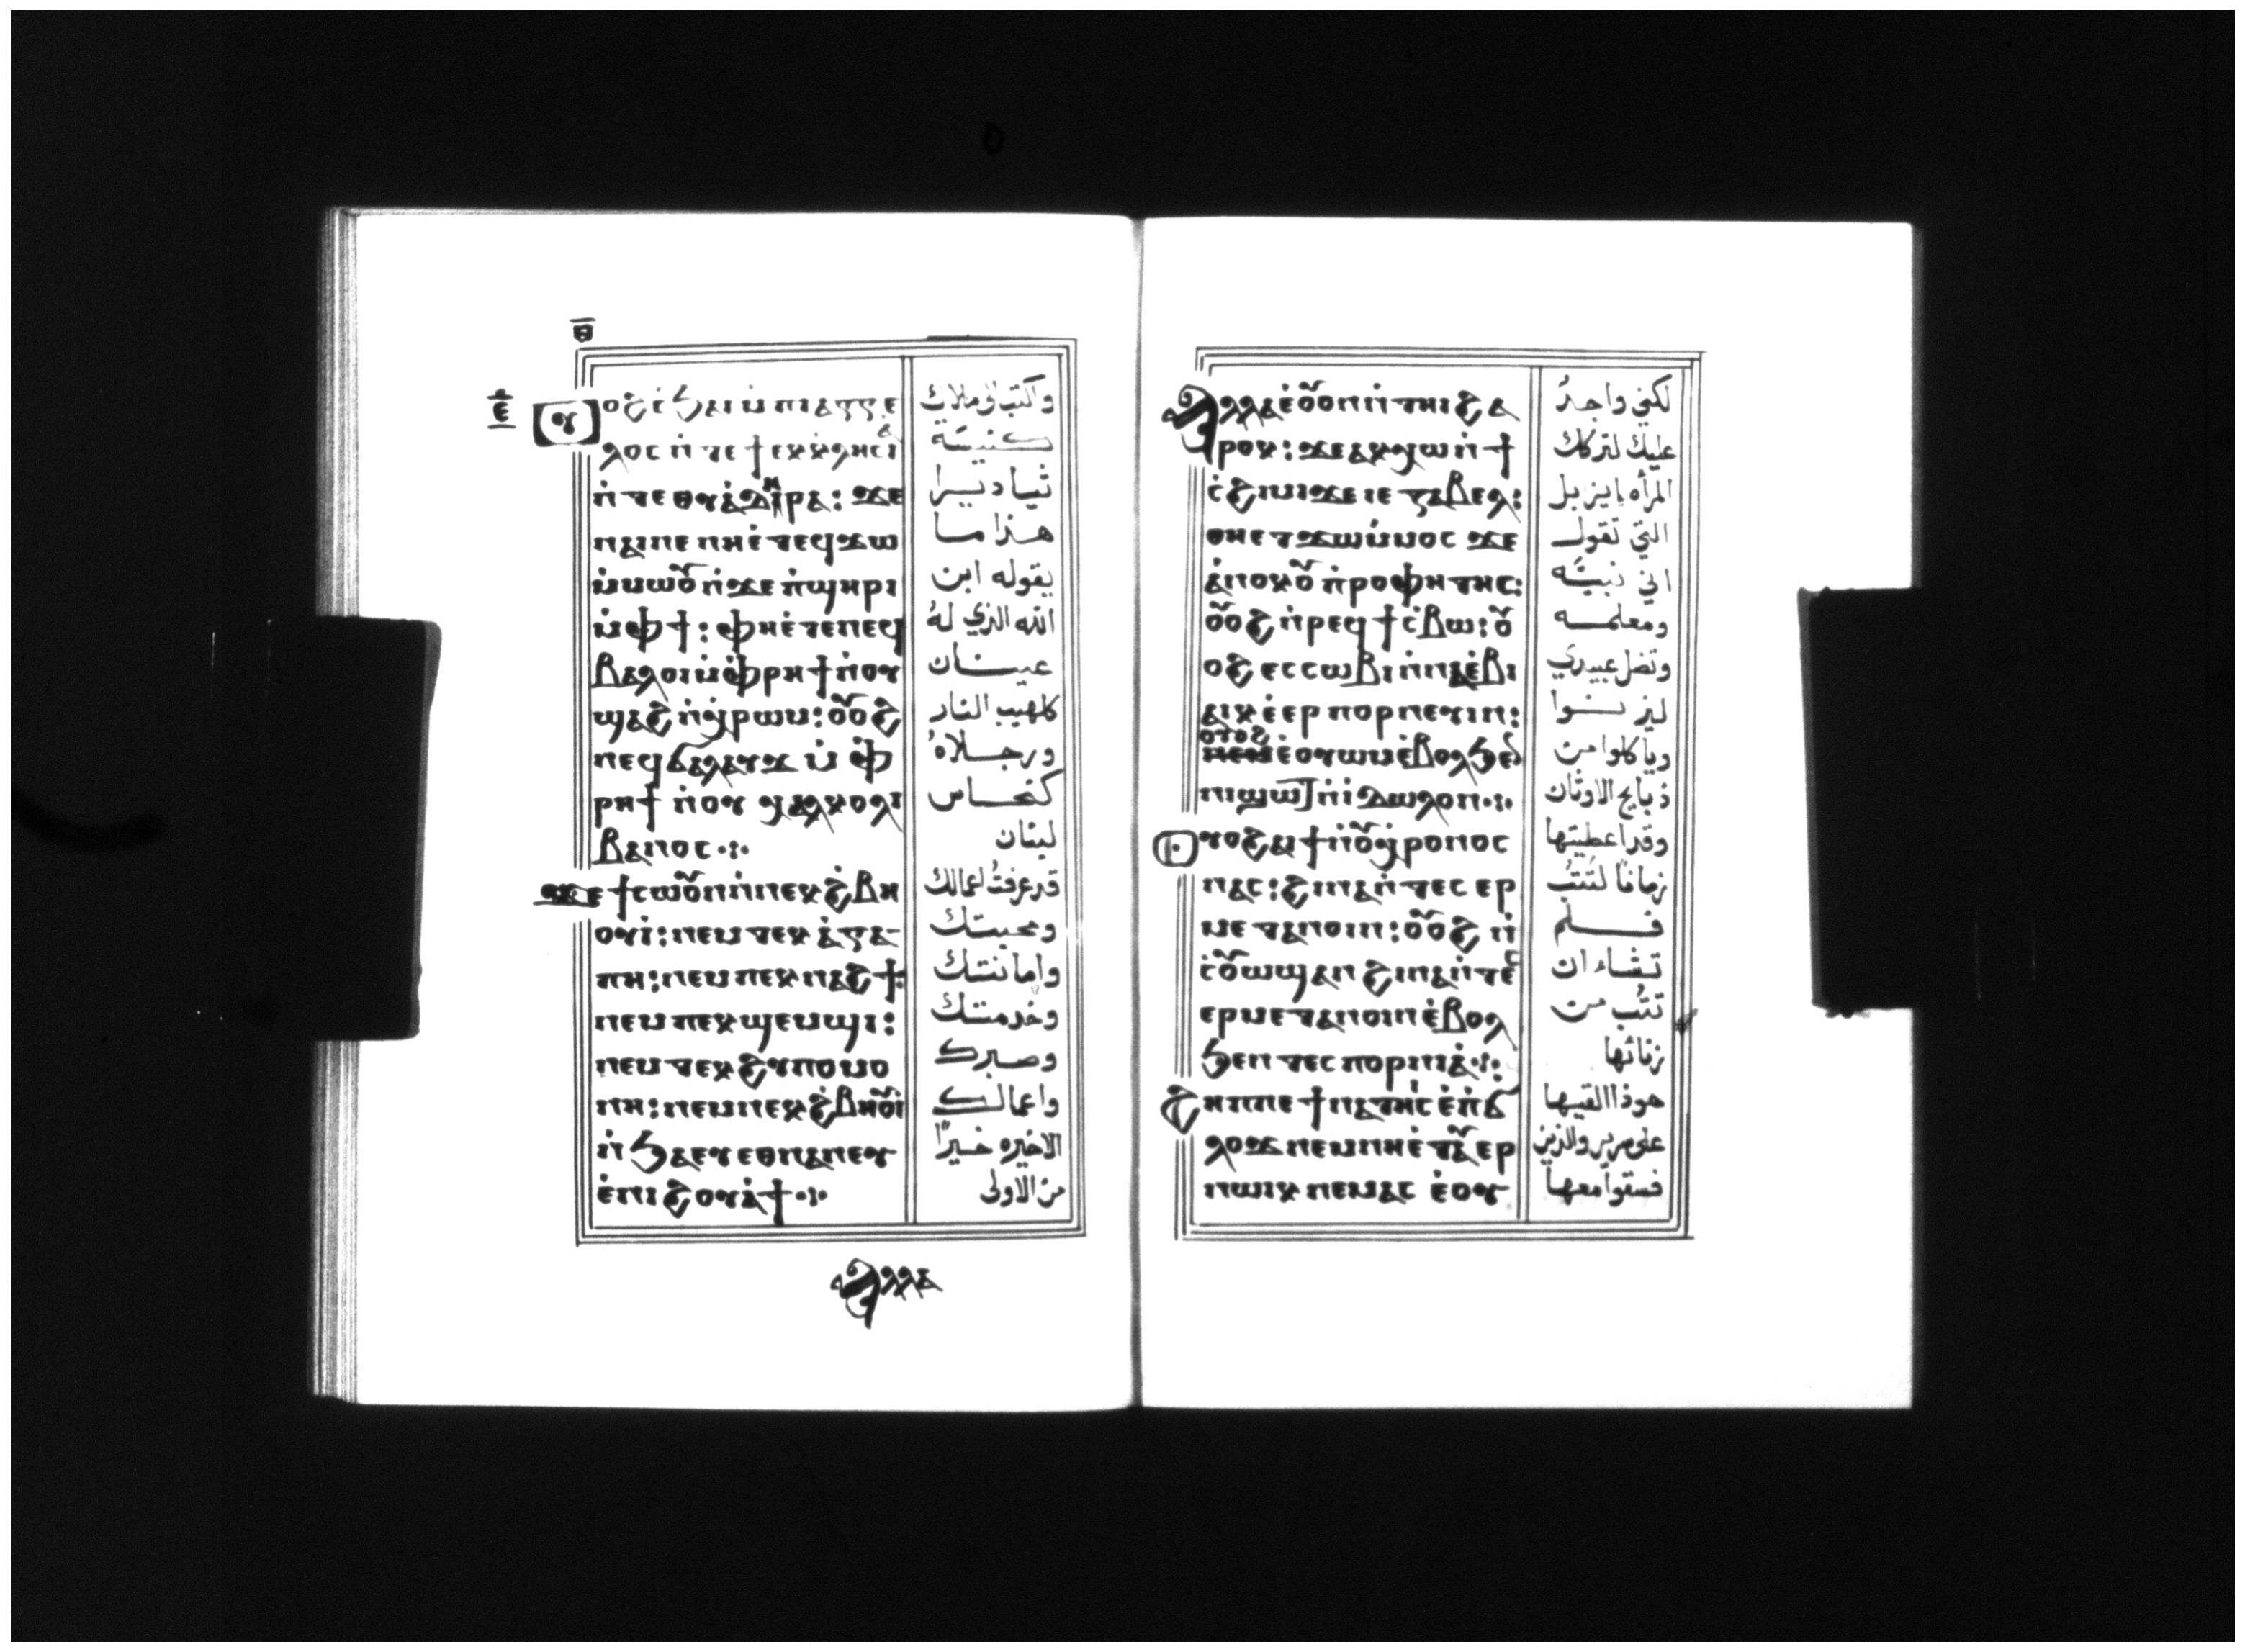 ⲑ
ⲉ
ⲟⲩⲟϩ ⲥϧⲁⲓ ⲙⲡⲓⲁⲅⲅⲉ
ⲗⲟⲥ ⲛⲧⲉ ϯⲉⲕⲕⲗⲏⲥⲓⲁ
ⲛⲧⲉ ⲑⲩⲁⲇⲏⲣⲁ: ϫⲉ
ⲛⲁⲓⲛⲉ ⲛⲏⲉⲧⲉϥϫⲱ
ⲙⲙⲱⲟⲩ ⲛϫⲉ ⲡϣⲏⲣⲓ
ⲙⲫϯ: ⲫⲏⲉⲧⲉⲛⲉϥ
ⲃⲁⲗ ⲟⲓ ⲙⲫⲣⲏϯ ⲛⲟⲩ
ϣⲁϩ ⲛⲭⲣⲱⲙ: ⲟⲩⲟϩ
ⲛⲉϥϭⲁⲗⲁⲩϫ ⲙⲫ
ⲣⲏϯ ⲛⲟⲩ ⲭⲁⲗⲕⲟⲗⲓ
ⲃⲁⲛⲟⲥ
ϫⲉ ϯⲥⲱⲟⲩⲛ ⲛⲛⲉⲕϩⲃⲏ
ⲟⲩⲓ: ⲛⲉⲙ ⲧⲉⲕⲁⲅⲁ
ⲡⲏ: ⲛⲉⲙ ⲡⲉⲕⲛⲁϩϯ:
ⲛⲉⲙ ⲡⲉⲕϣⲉⲙϣⲓ:
ⲛⲉⲙ ⲧⲉⲕϩⲩⲡⲟⲙⲟ
ⲛⲏ: ⲛⲉⲙ ⲛⲉⲕϩⲃⲏⲟⲩⲓ
ⲛϧⲁⲉⲩ ⲉⲑⲛⲁⲛⲉⲩ
ⲉⲛⲓϩⲟⲩⲁϯ
واكتب لملاك
كنيسة
ثياديرا
هذا ما
يقوله ابن
الله الذي له
عينان
كلهيب النار
ورجلاه
كنحاس
لبنان
قد عرفتُ اعمالك
ومحبتك
وامانتك
وخدمتك
وصبرك
واعمالك
الاخيره خيراً
من الاولى
ⲁⲗⲗⲁ
ⲁⲗⲗⲁ ⲉⲟⲩⲟⲛⲛⲧⲏⲓ ϩⲁ
ⲣⲟⲕ: ϫⲉ ⲁⲕⲭⲱ ⲛϯ
ⲥϩⲓⲙⲓ ϫⲉ ⲓⲉⲍⲁⲃⲉⲗ:
ⲑⲏⲉⲧϫⲱ ⲙⲙⲟⲥ ϫⲉ
ⲁⲛⲟⲕ ⲟⲩⲡⲣⲟⲫⲏⲧⲏⲥ:
ⲟⲩⲟϩ ⲛⲣⲉϥϯⲥⲃⲱ: ⲟⲩ
ⲟϩ ⲉⲥⲥⲱⲃⲓ ⲛⲛⲁⲉⲃⲓ
ⲁⲓⲕ ⲉⲉⲣ ⲡⲟⲣⲛⲉⲩⲓⲛ:
ⲟⲩⲟϩ
ⲛⲉⲙ ⲉⲟⲩⲱⲙ ⲉⲃⲟⲗϧⲉⲛ
ⲛⲓϣⲱⲧ ⲛⲓⲇⲱⲗⲟⲛ
ⲟⲩⲟϩ ⲁⲓϯ ⲛⲟⲩⲭⲣⲟⲛⲟⲥ
ⲛⲁⲥ: ϩⲓⲛⲁ ⲛⲧⲉⲥⲉⲣ
ⲙⲉⲧⲁⲛⲟⲓⲛ: ⲟⲩⲟϩ ⲛ
ⲥⲟⲩⲱϣ ⲁⲛ ϩⲓⲛⲁ ⲛⲧⲉⲥ
ⲉⲣⲙⲉⲧⲁⲛⲟⲓⲛ ⲉⲃⲟⲗ
ϧⲉⲛ ⲧⲉⲥⲡⲟⲣⲛⲓⲁ
ϩⲏⲡⲡⲉ ϯⲛⲁϩⲓⲧⲥ ⲉⲡϭ
ⲗⲟϫ ⲛⲉⲙ ⲛⲏⲉⲧⲁⲩⲉⲣ
ⲛⲱⲓⲕ ⲛⲉⲙⲁⲥ ⲉⲟⲩ
لكني واجدُ
عليك لتركك
المرأه إيزبل
التي تقول
اني نبيَّه
ومعلمه
وتضل عبيدي
ليزنوا
وياكلوا من
ذبايح الاوثان
وقد اعطيتها
زماناً لتتُب
فلم
تشاء ان
تتُب من
زنائها
هوذا القيها
على سرير والذين
فسقوا معها